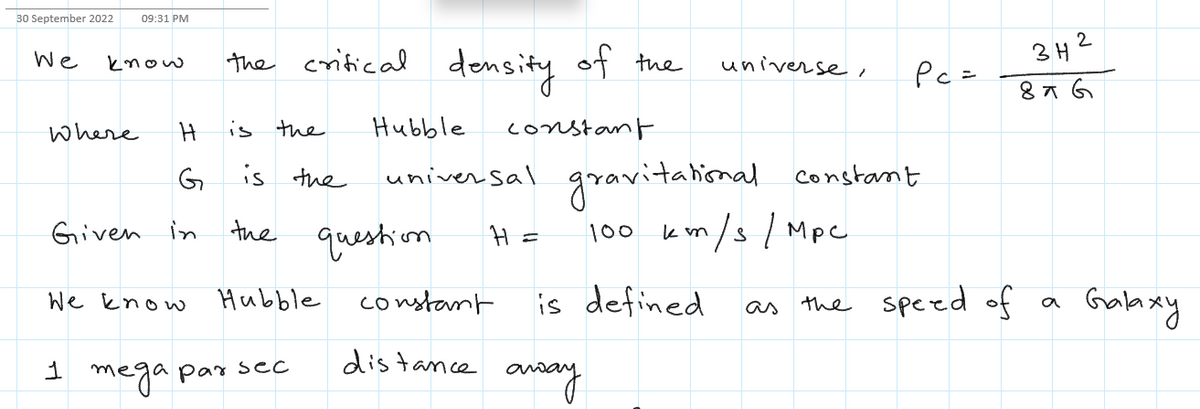 30 September 2022 09:31 PM
We know the critical density of the universe, ρc = 3H² / 8πG
where H is the Hubble constant
G is the universal gravitational constant
Given in the question H = 100 km/s / Mpc
We know Hubble constant is defined as the speed of a Galaxy
1 megaparsec distance away